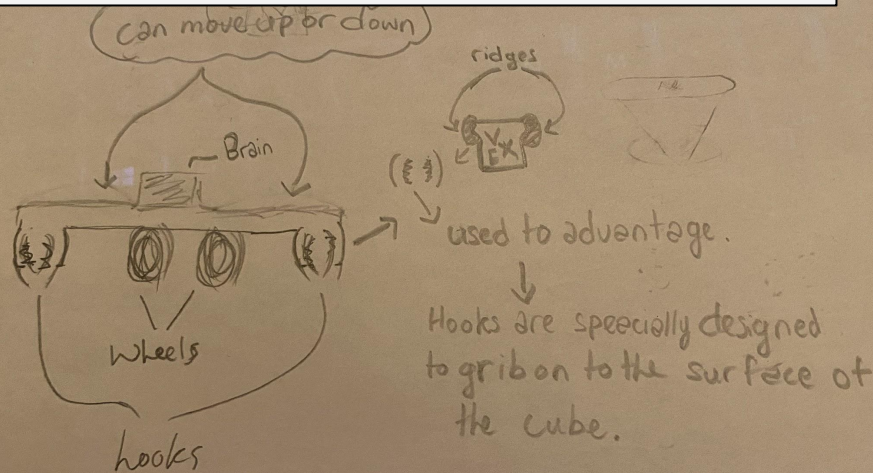 can move up or down
ridges
Brain
V
EX
used to advantage.
Wheels
Hooks are speecially designed
to grib on to the surface of
the cube.
hooks